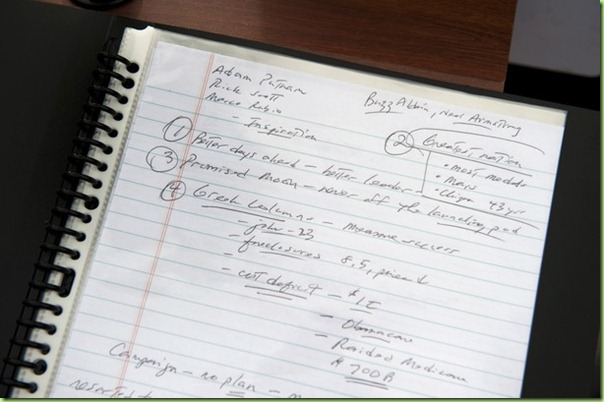 Adam Putnam
Rick Scott
Marco Rubio
- Inspiration
Buzz Aldrin, Neil Armstrong
① Better days ahead - better leader
② Greatest nation
• most medals
• Mars
• 43 yr
③ Promised Moon - never off the launching pad
④ Greek Columns - measure success
- jobs - 23
- foreclosures 8.5,
- cut deficit - $1T
- Obamacare
- Raided Medicare
$700B
Campaign - no plan -
resorted to